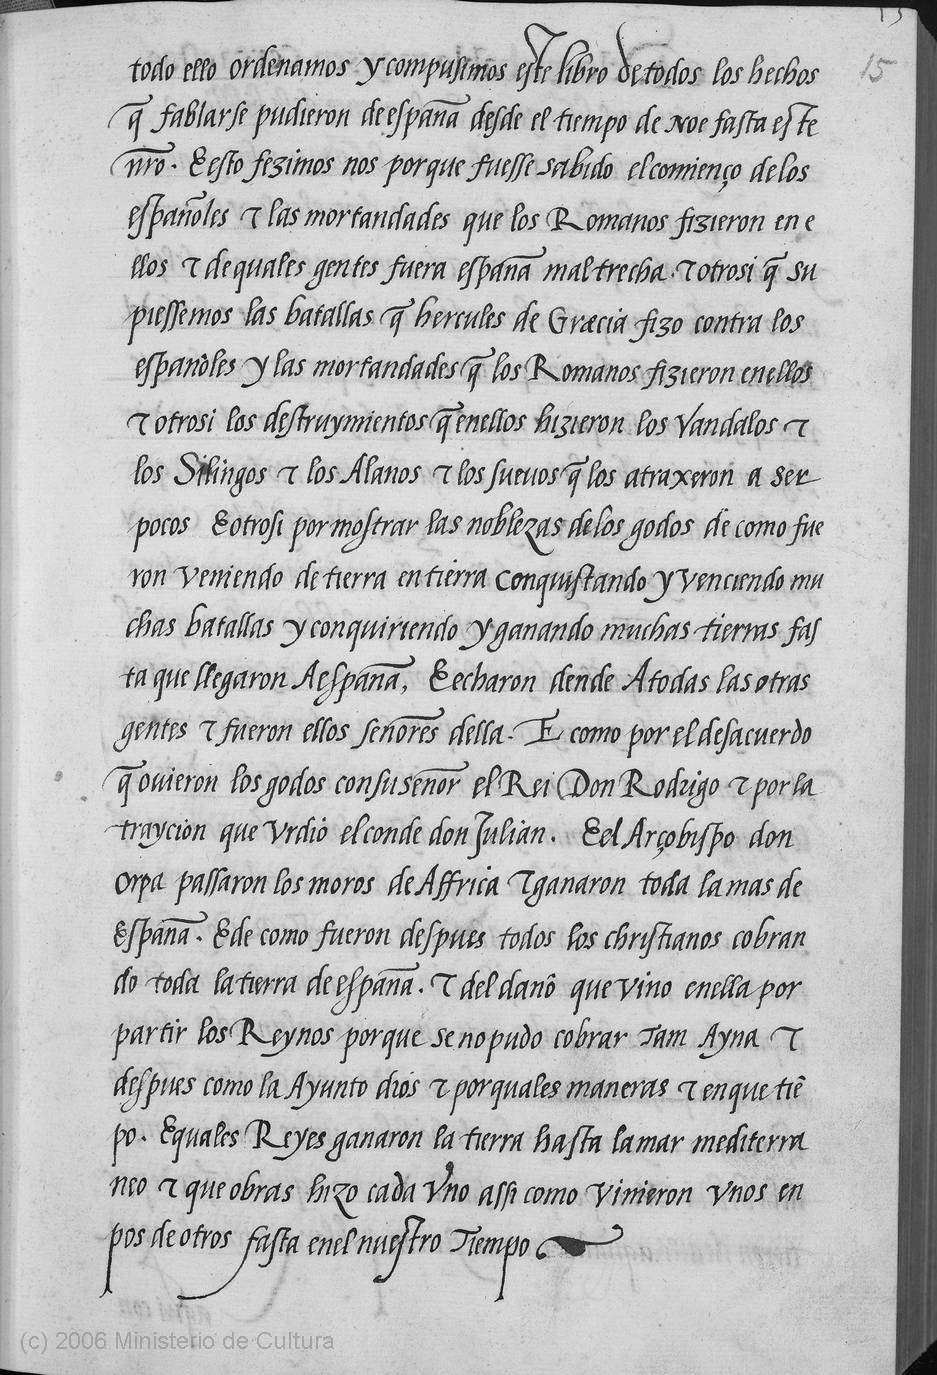 15
todo ello ordenamos y compusimos este libro de todos los hechos
q̃ fablarse pudieron de españa desde el tiempo de noe fasta este
nr̃o. E esto fezimos nos porque fuesse sabido el comienço de los
españoles τ las mortandades que los Romanos fizieron en e
llos τ de quales gentes fuera españa maltrecha. τ otrosi q̃ su
piessemos las batallas q̃ hercules de Græcia fizo contra los
españoles y las mortandades q̃ los Romanos fizieron en ellos
τ otrosi los destruymientos q̃ en ellos hizieron los Vandalos τ
los Silingos τ los Alanos τ los suevos q̃ los atraxeron a ser
pocos E otrosi por mostrar las noblezas de los godos de como fue
ron veniendo de tierra en tierra conquistando y venciendo mu
chas batallas y conquiriendo y ganando muchas tierras fas
ta que llegaron A españa, E echaron dende A todas las otras
gentes τ fueron ellos señores della. E como por el desacuerdo
q̃ ovieron los godos con su señor el Rei Don Rodrigo τ por la
traycion que Vrdió el conde don Julian. E el Arçobispo don
orpa passaron los moros de Affrica τ ganaron toda la mas de
España. E de como fueron despues todos los christianos cobran
do toda la tierra de españa. τ del daño que vino en ella por
partir los Reynos porque se no pudo cobrar Tam Ayna τ
despues como la Ayunto dios τ por quales maneras τ en que tiē
po. E quales Reyes ganaron la tierra hasta la mar mediterra
neo τ que obras hizo cada Vno assi como vinieron vnos en
pos de otros fasta en el nuestro Tiempo
(c) 2006 Ministerio de Cultura